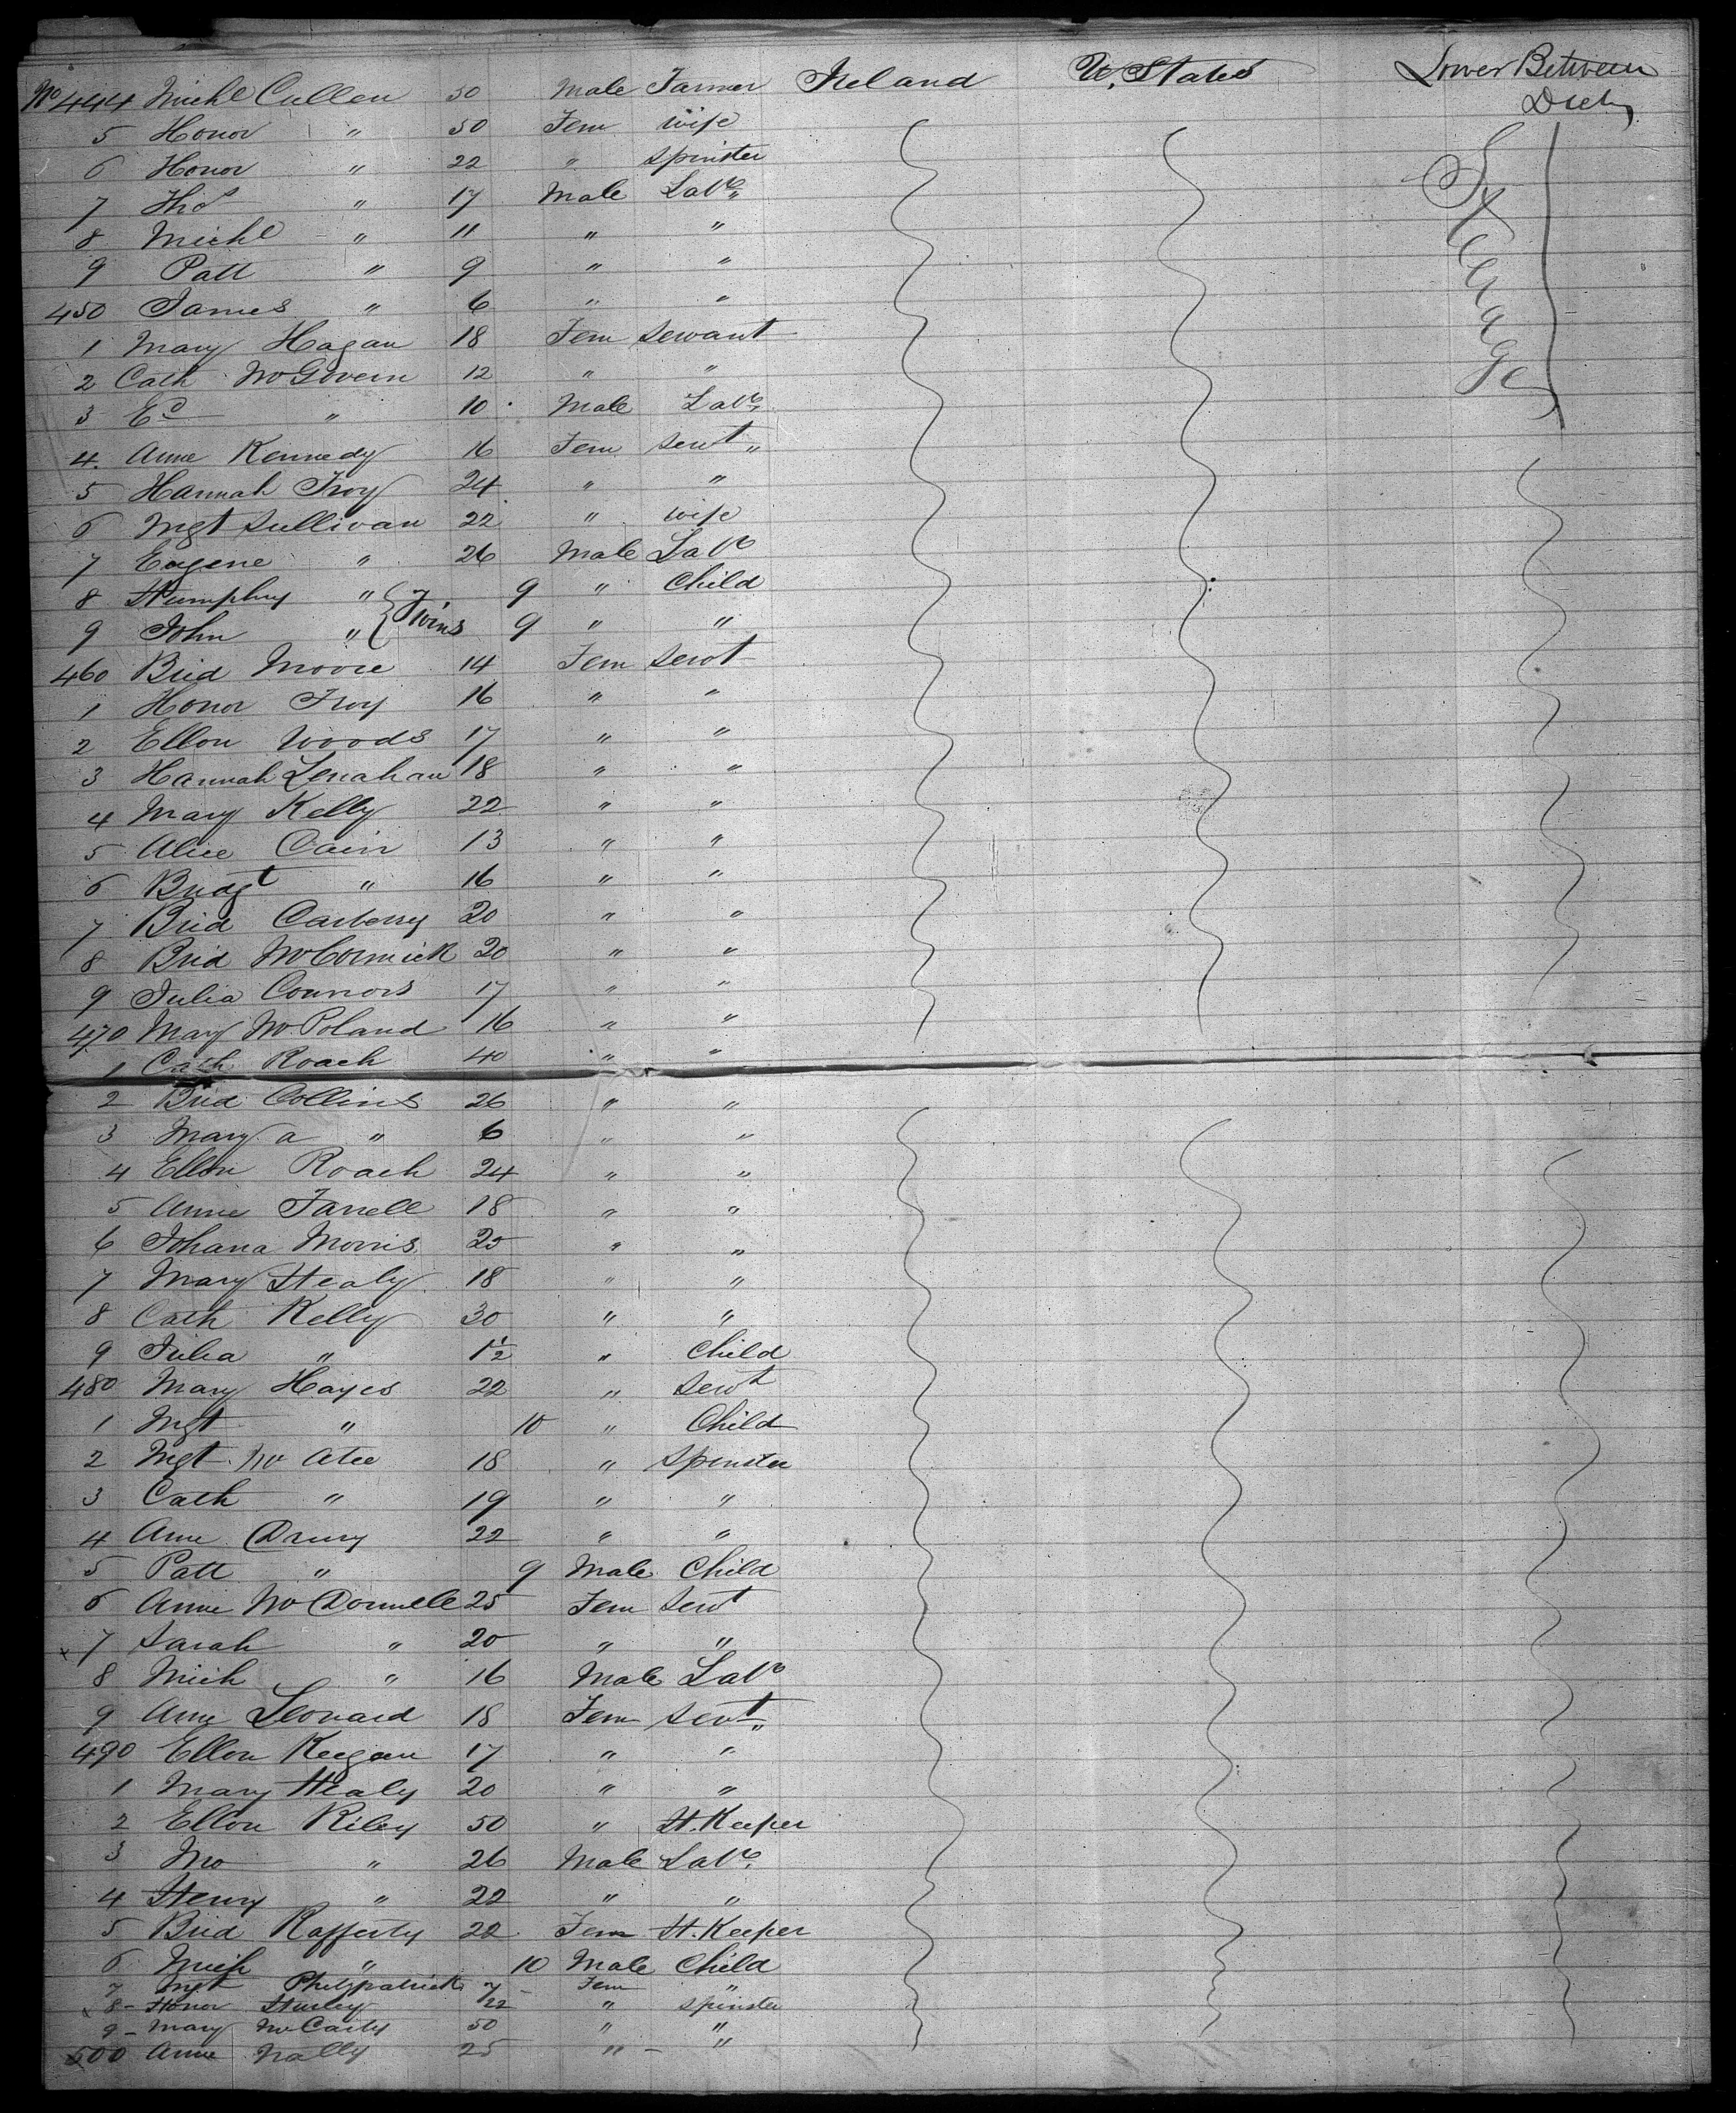 No 444 Michl Cullen 50 Male Farmer Ireland U. States Lower Between Deck
5 Honor " 50 Fem wife
6 Honor " 22 " Spinster
7 Thos " 17 Male Labr
8 Michl " 11 " "
9 Patt " 9 " "
450 James " 6 " "
1 Mary Hagan 18 Fem Servant
2 Cath McGovern 12 " "
3 Ed " 10 Male Labr
4 Anne Kennedy 16 Fem Servt "
5 Hannah Troy 24 " "
6 Mgt Sullivan 22 " wife
7 Eugene " 26 Male Labr
8 Humphry " 9 " Child
Twins
9 John " 9 " "
460 Brid Moore 14 Fem Servt
1 Honor Troy 16 " "
2 Ellen Woods 17 " "
3 Hannah Lenahan 18 " "
4 Mary Kelly 22 " "
5 Alice Cain 13 " "
6 Bridgt " 16 " "
7 Brid Carberry 20 " "
8 Brid McCormick 20 " "
9 Julia Connors 17 " "
470 Mary McPoland 16 " "
1 Cath Roach 40 " "
2 Brid Collins 26 " "
3 Mary a " 6 " "
4 Ellen Roach 24 " "
5 Anne Farrell 18 " "
6 Johana Morris 25 " "
7 Mary Healy 18 " "
8 Cath Kelly 30 " "
9 Julia " 1½ " Child
480 Mary Hayes 22 " Servt
1 Mgt " 10 " Child
2 Mgt McAtee 18 " Spinster
3 Cath " 19 " "
4 Anne Drury 22 " "
5 Patt " 9 Male Child
6 Anne McDonnell 25 Fem Servt
x 7 Sarah " 20 " "
8 Mich " 16 Male Labr
9 Anne Leonard 18 Fem Servt "
490 Ellen Keegan 17 " "
1 Mary Healy 20 " "
2 Ellen Riley 50 " H. Keeper
3 Jno " 26 Male Labr
4 Henry " 22 " "
5 Brid Rafferty 22 Fem H. Keeper
6 Mich " 10 Male Child
7 Mgt Phetzpatrick 7 Fem "
x 8 - Honor Hurley 22 " Spinster
9 - Mary McCarty 50 " "
500 Anne Nally 25 " - "
Steerage